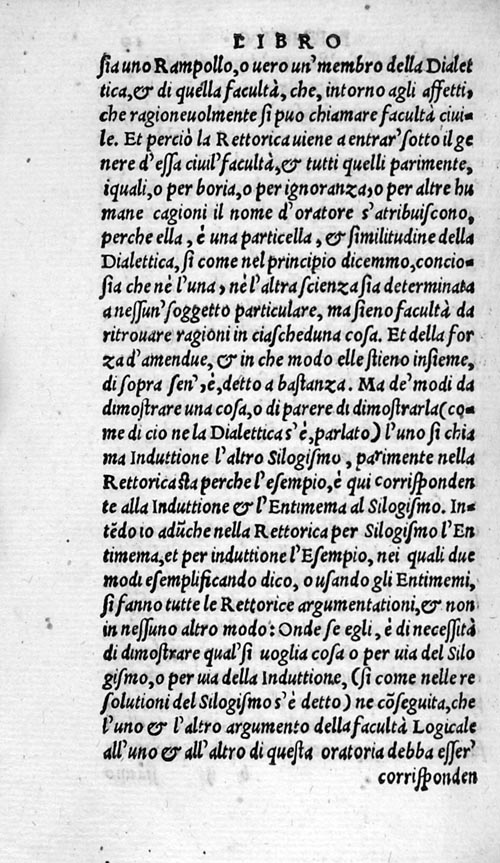 LIBRO
ſia uno Rampollo, o uero un' membro della Dialet
tica, & di quella facultà, che, intorno agli affetti,
che ragioneuolmente ſi puo chiamare facultà ciui-
le. Et perciò la Rettorica uiene a entrar' ſotto il ge
nere d'eſſa ciuil' facultà, & tutti quelli parimente,
iquali, o per boria, o per ignoranza, o per altre hu
mane cagioni il nome d'oratore s'atribuiſcono,
perche ella, è una particella, & ſimilitudine della
Dialettica, ſi come nel principio dicemmo, concio-
ſia che nè l'una, nè l'altra ſcienza ſia determinata
a neſſun' ſoggetto particulare, ma ſieno facultà da
ritrouare ragioni in ciaſcheduna coſa. Et della for
za d'amendue, & in che modo elle ſtieno inſieme,
di ſopra ſen', è, detto a baſtanza. Ma de' modi da
dimoſtrare una coſa, o di parere di dimoſtrarla (co-
me di cio ne la Dialettica s'è, parlato) l'uno ſi chia
ma Induttione l'altro Silogiſmo, parimente nella
Rettorica ſta perche l'eſempio, è qui corriſponden
te alla Induttione & l'Entimema al Silogiſmo. In-
tẽdo io adũche nella Rettorica per Silogiſmo l'En
timema, et per induttione l'Eſempio, nei quali due
modi eſemplificando dico, o uſando gli Entimemi,
ſi fanno tutte le Rettorice argumentationi, & non
in neſſuno altro modo: Onde ſe egli, è di neceſſità
di dimoſtrare qual' ſi uoglia coſa o per uia del Silo
giſmo, o per uia della Induttione, (ſi come nelle re
ſolutioni del Silogiſmo s'è detto) ne cõſeguita, che
l'uno & l'altro argumento della facultà Logicale
all'uno & all'altro di queſta oratoria debba eſſer'
corriſponden